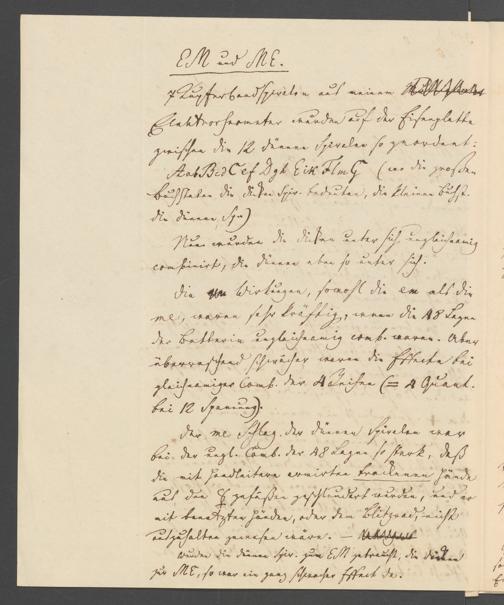 EM und ME.
7 Kupferbandspiralen aus meinem
Elektrorheometer wurden auf der Eisenplatte
zwischen die 12 dünnen Spiralen so geordnet:
AabBcdCefDghEikFlmG (wo die großen
Buchstaben die dicken Spir. bedeuten, die kleinen Buchst.
die dünnen Sp.)
Nun wurden die dicken unter sich ungleichnamig
combinirt, die dünnen eben so unter sich.
Die Wirkungen, sowohl die em als die
me, waren sehr kräftig, wenn die 48 Lagen
der Batterie ungleichnamig comb. waren. Aber
überraschend schwächer waren die Effecte bei
gleichnamiger Comb. der (= 4 Quant.
bei 12 Spannung).
Der me Schlag der dünnen Spiralen war
bei der ungl. Comb. der 48 Lagen so stark, daß
die mit Handleitern armirten trockenen Hände
aus den gefäßen geschleudert wurden, und er
mit benetzten Händen, oder dem nicht
auszuhalten gewesen wäre. —
Wurden die dünnen Spir. zum EM gebraucht, die dicken
zur ME, so war ein ganz schwacher Effect da.